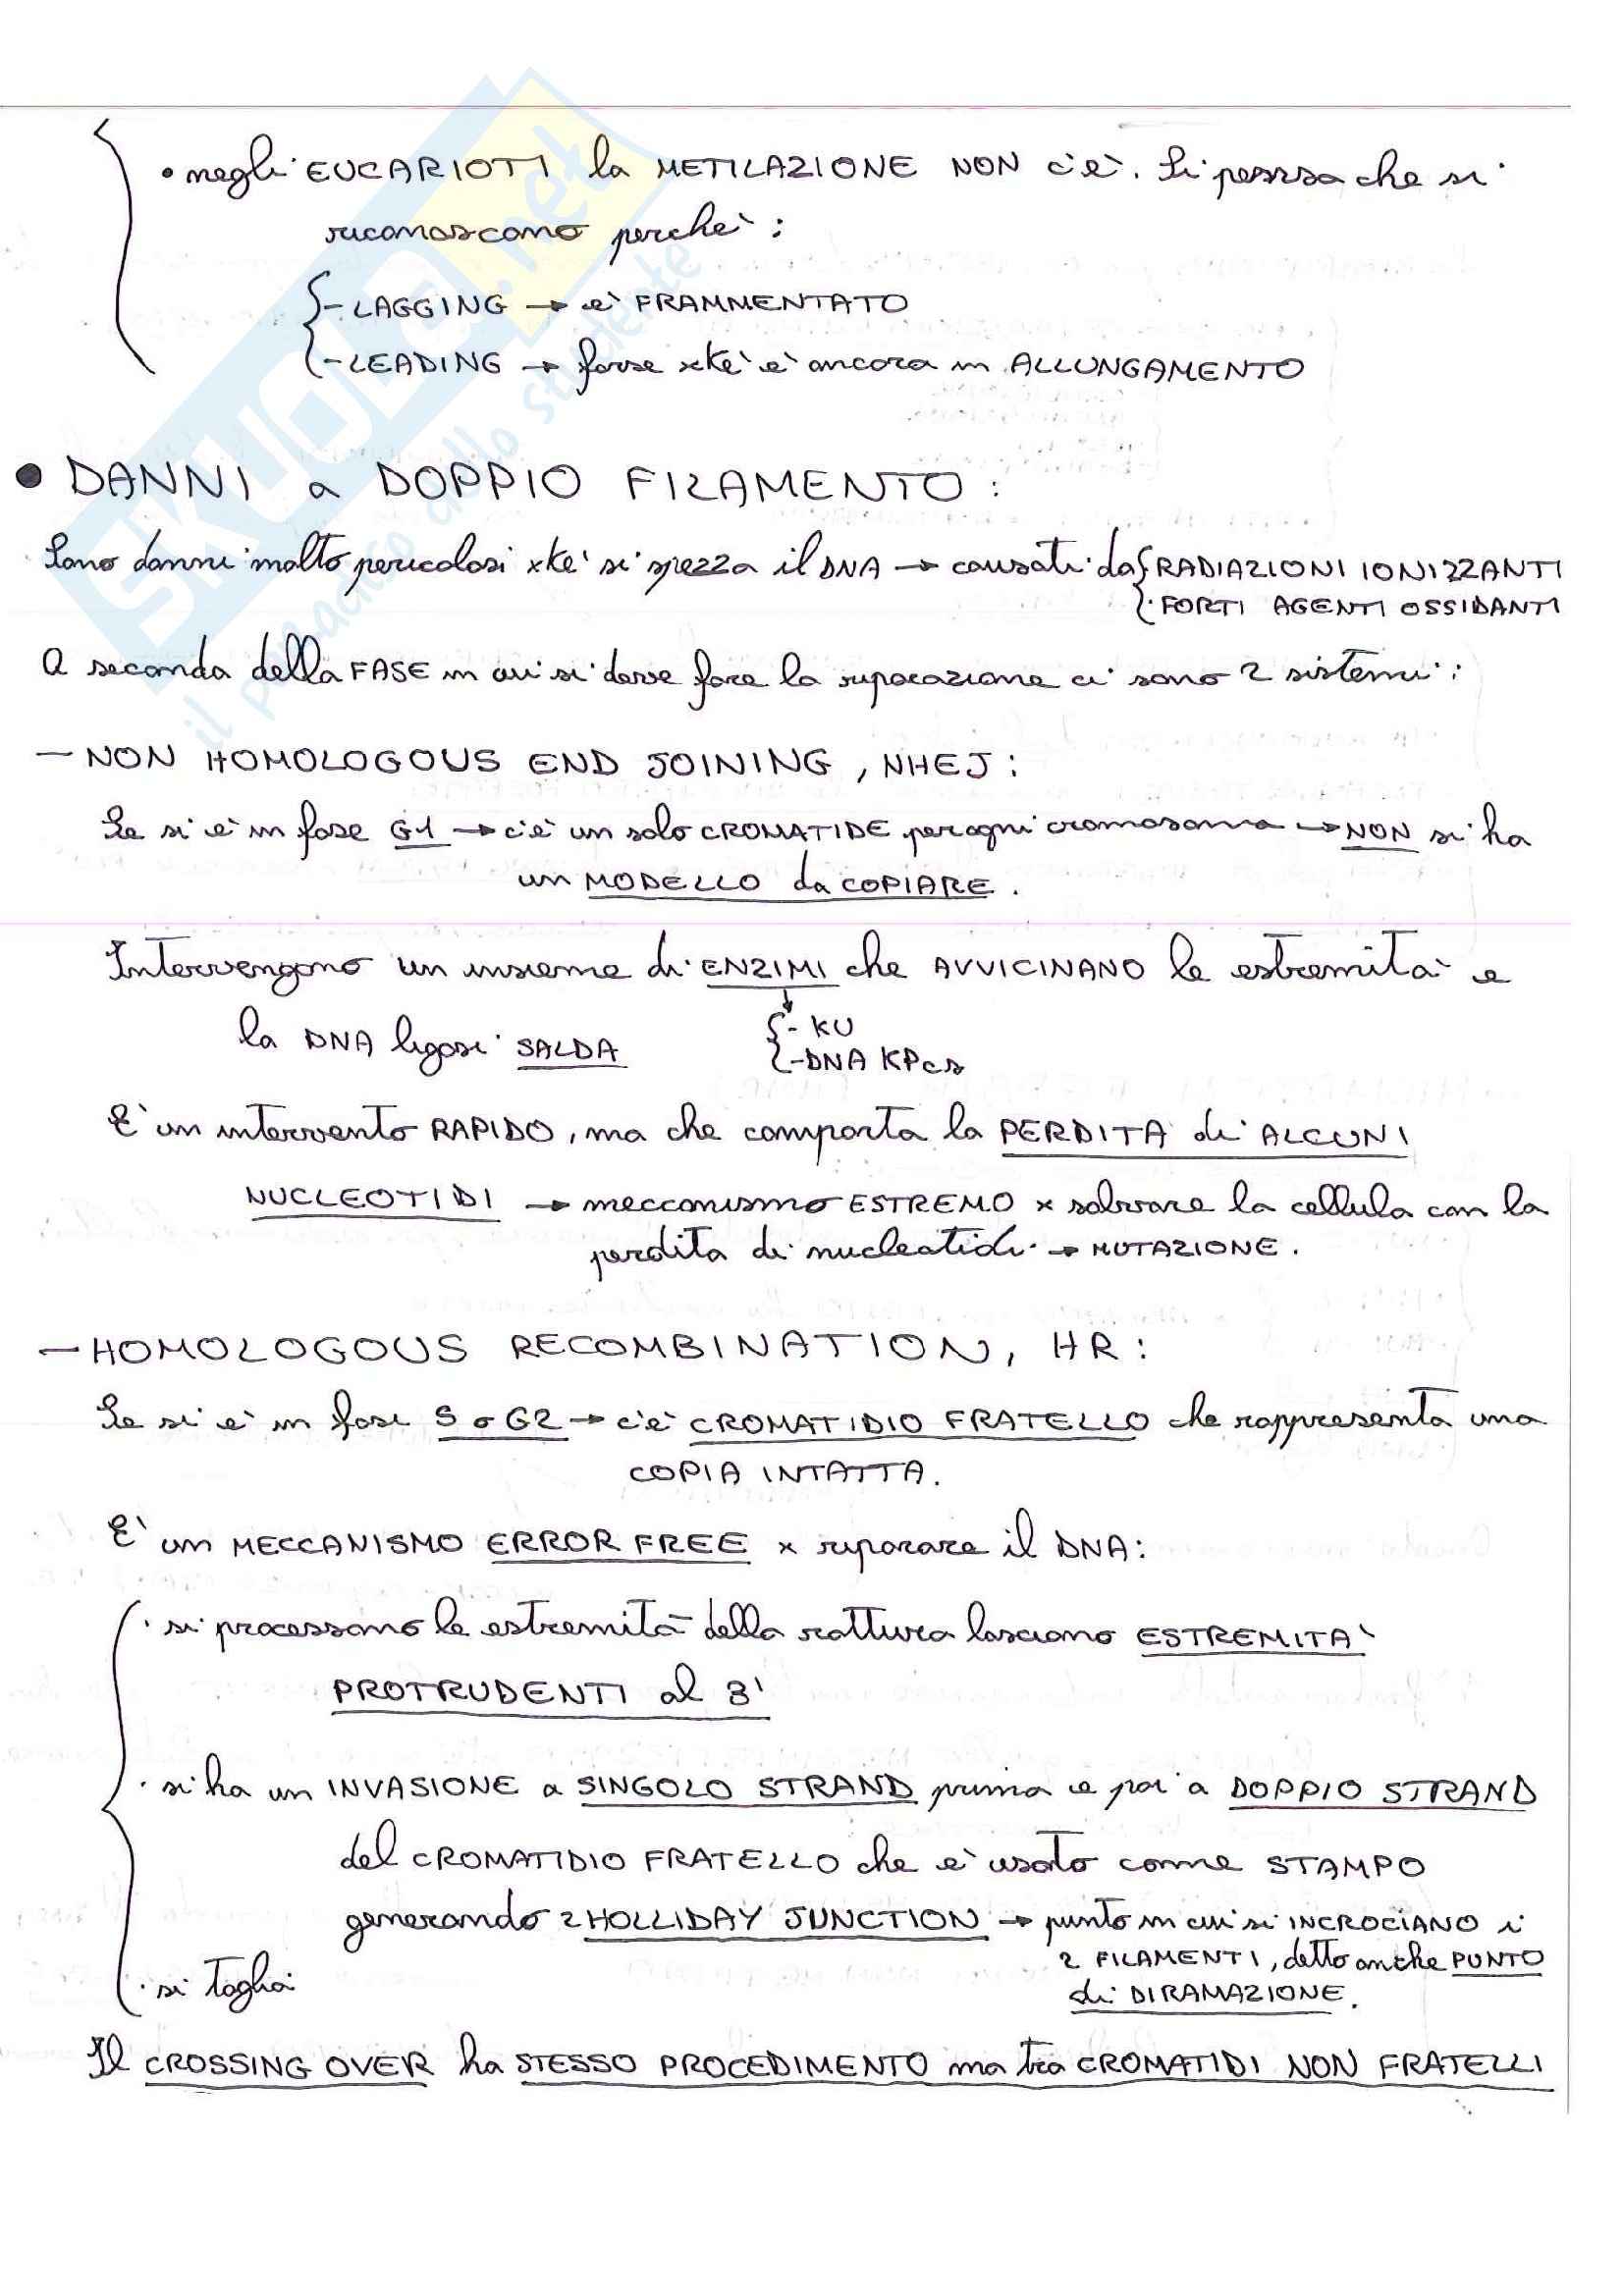 • negli EUCARIOTI la METILAZIONE NON c'è. Si pensa che si
riconoscono perchè:
- LAGGING → è FRAMMENTATO
- LEADING → forse xkè è ancora in ALLUNGAMENTO
• DANNI a DOPPIO FILAMENTO:
Sono danni molto pericolosi xkè si spezza il DNA → causati da { RADIAZIONI IONIZZANTI
· FORTI AGENTI OSSIDANTI
A seconda della FASE in cui si deve fare la riparazione ci sono 2 sistemi:
- NON HOMOLOGOUS END JOINING, NHEJ:
Se si è in fase G1 → c'è un solo CROMATIDE per ogni cromosoma → NON si ha
un MODELLO da COPIARE.
Intervengono un insieme di ENZIMI che AVVICINANO le estremità e
la DNA ligasi SALDA
- KU
- DNA KPcs
E' un intervento RAPIDO, ma che comporta la PERDITA di ALCUNI
NUCLEOTIDI → meccanismo ESTREMO x salvare la cellula con la
perdita di nucleotidi → MUTAZIONE.
- HOMOLOGOUS RECOMBINATION, HR:
Se si è in fasi S o G2 → c'è CROMATIDIO FRATELLO che rappresenta una
COPIA INTATTA.
E' un MECCANISMO ERROR FREE x riparare il DNA:
· si processano le estremità della rottura lasciano ESTREMITA'
PROTRUDENTI al 3'
· si ha un INVASIONE a SINGOLO STRAND prima e poi a DOPPIO STRAND
del CROMATIDIO FRATELLO che è usato come STAMPO
generando 2 HOLLIDAY JUNCTION → punto in cui si INCROCIANO i
2 FILAMENTI, detto anche PUNTO
di DIRAMAZIONE.
· si taglia
Il CROSSING OVER ha STESSO PROCEDIMENTO ma tra CROMATIDI NON FRATELLI
SKUOLA.net
il paradiso dello studente